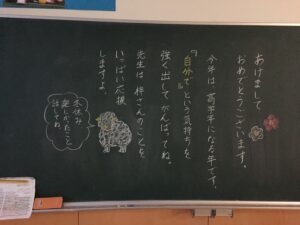 あけまして
おめでとうございます。
今年は高学年になる年です。
『自分で』という気持ちを
強く出してがんばってね。
先生は梓さんのことを、
いっぱい応援
しますよ。
冬休み
楽しかったこと
話してね